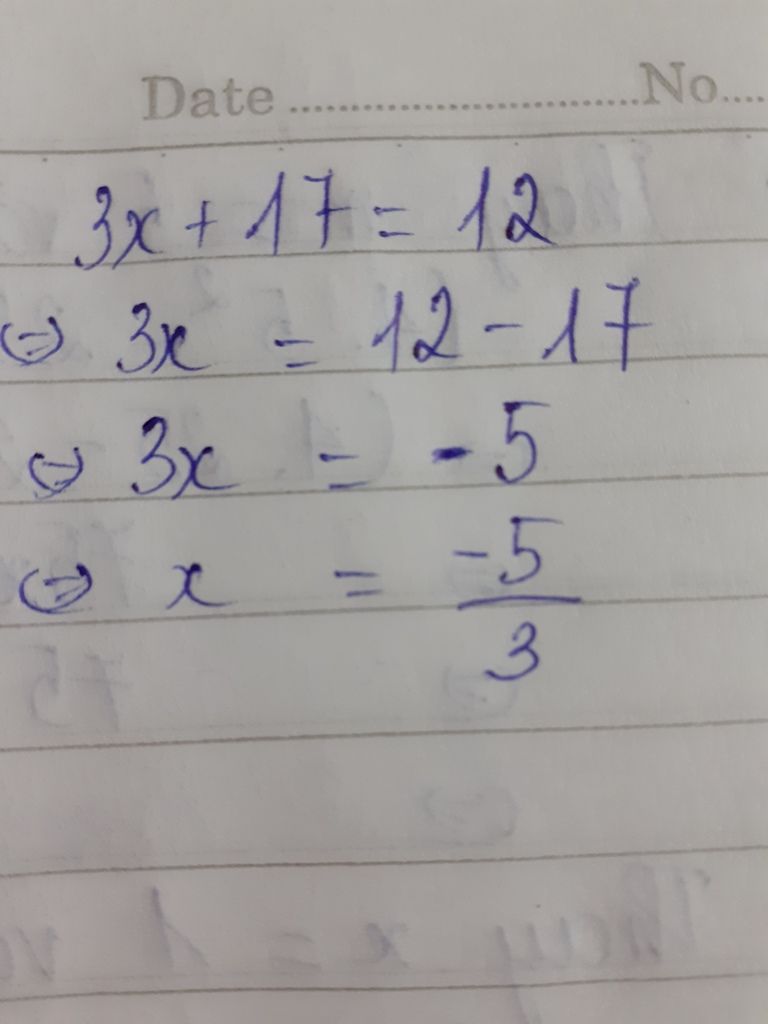 Date ........................... No....
3x + 17 = 12
⇔ 3x = 12 - 17
⇔ 3x = - 5
⇔ x = -5/3